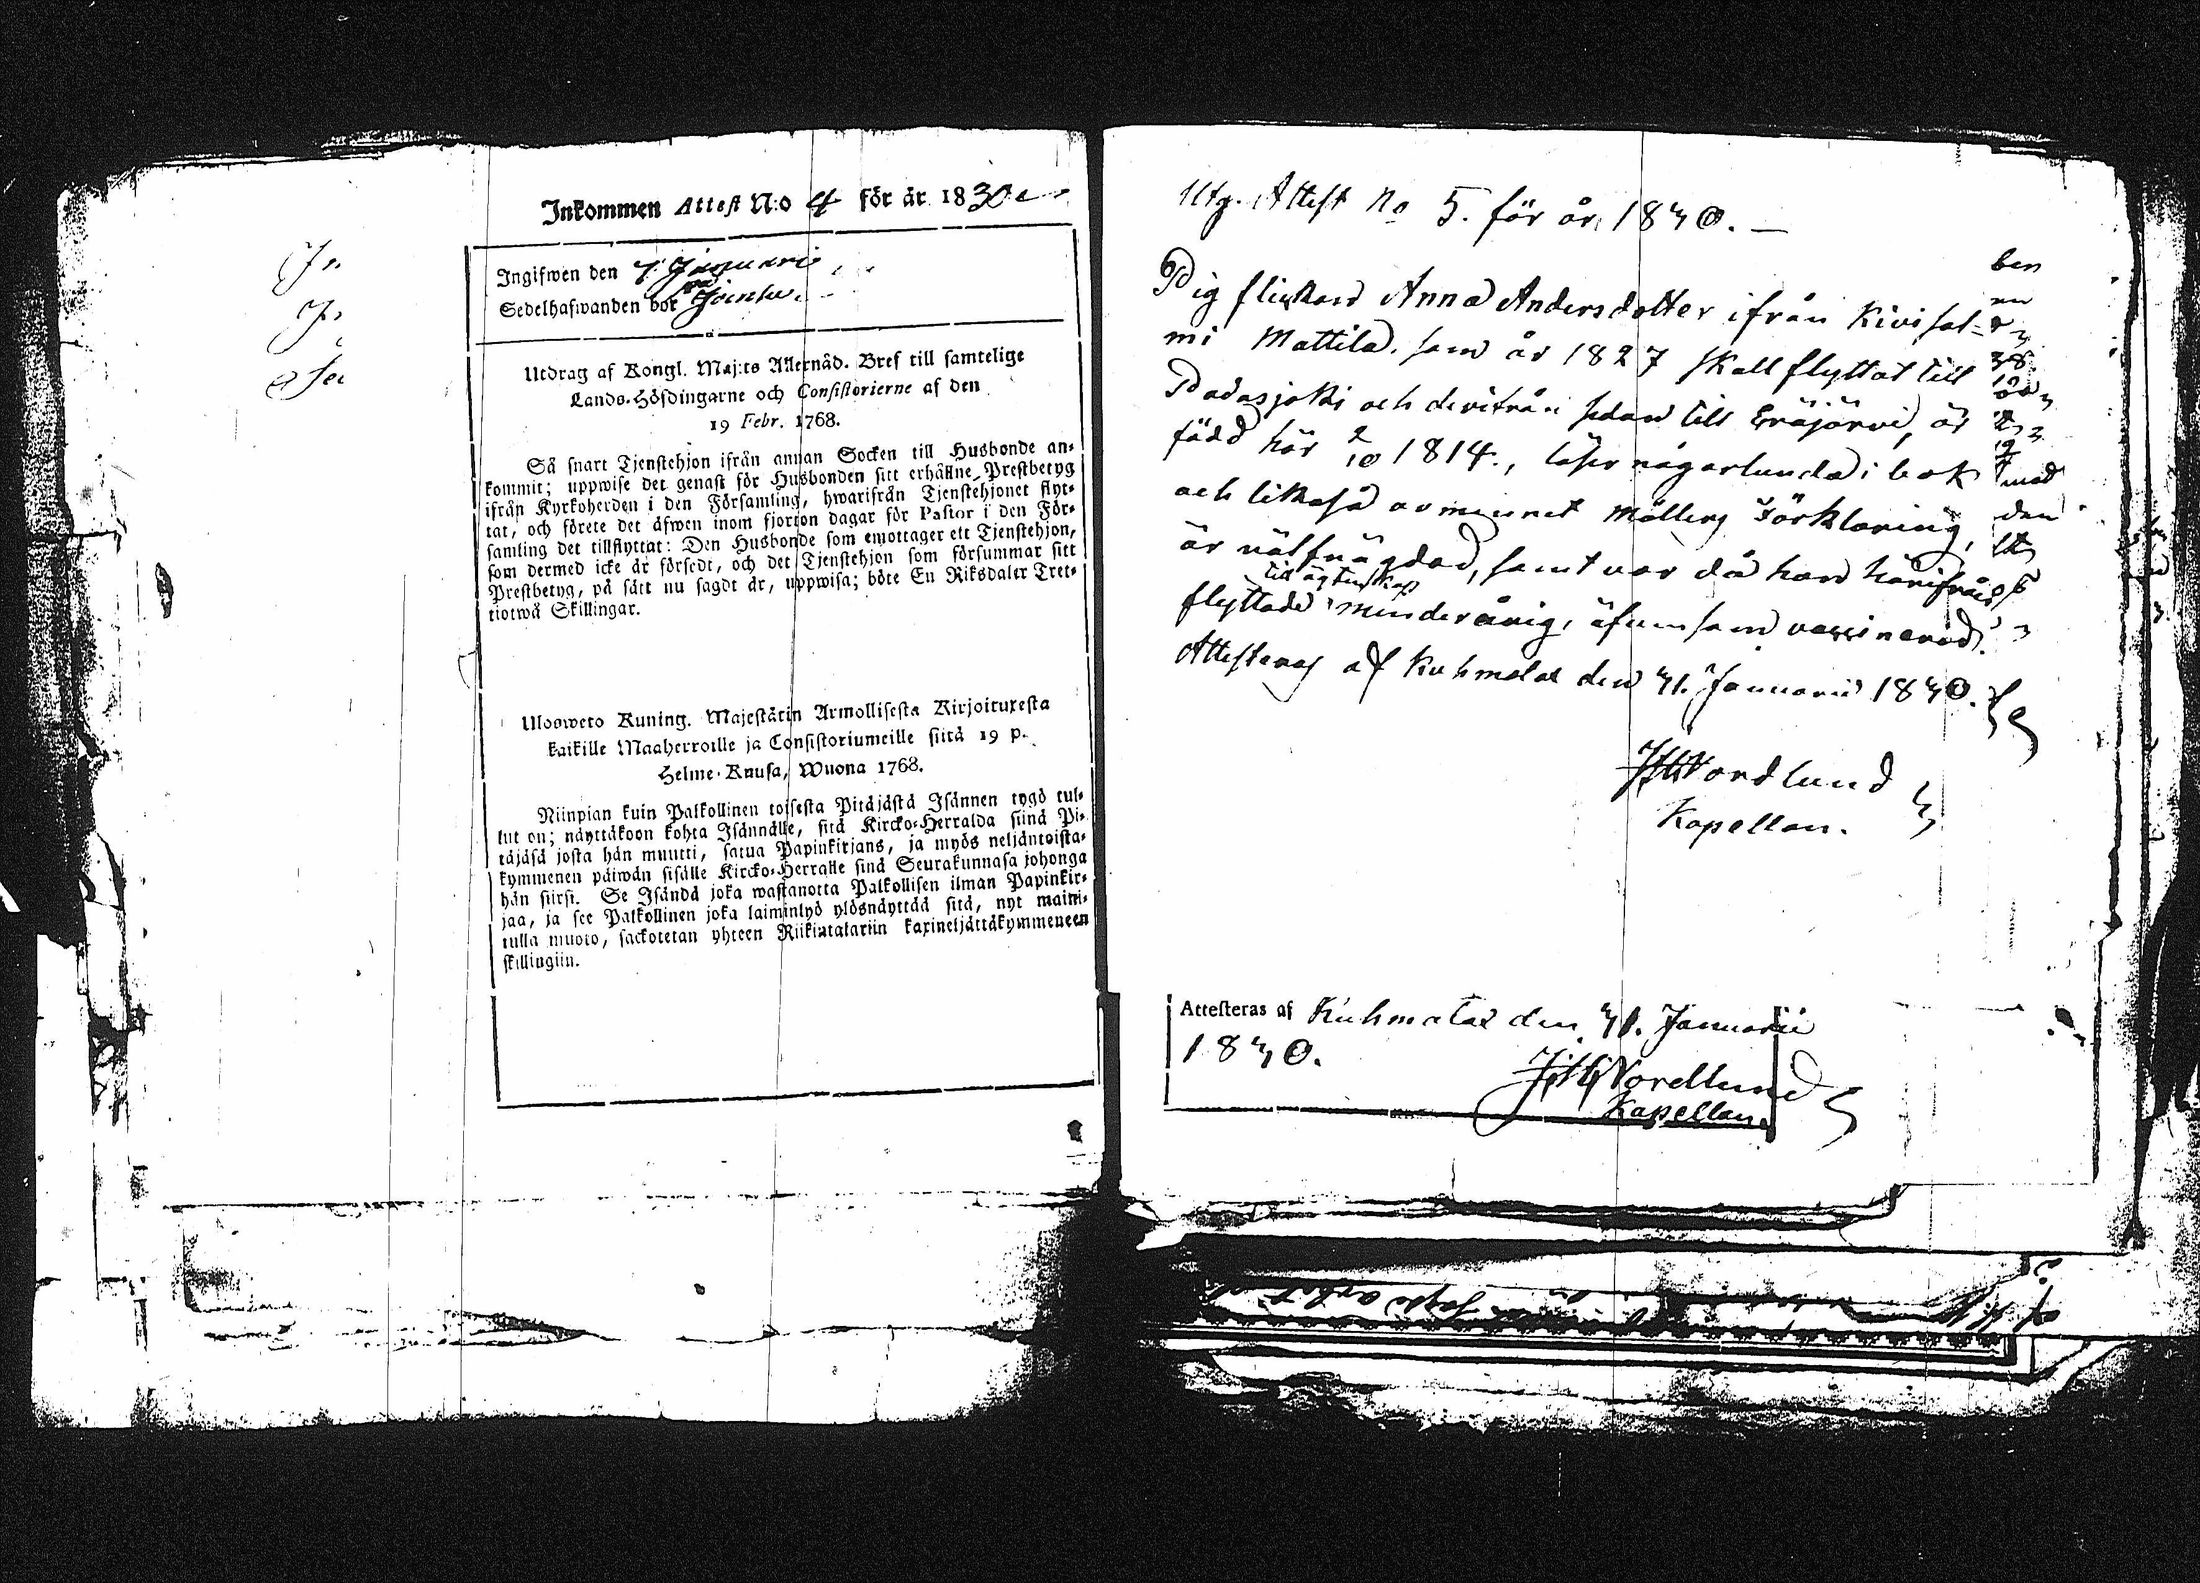 Inkommen Attest N:o 4 för år 1830
Ingifwen den 7 Januari
Sedelhafwanden bor på
Utdrag af Kongl. Maj:ts Allernåd. Bref till samtelige
Lands-Höfdingarne och Consistorierne af den
19 Febr. 1768.
Så snart Tjenstehjon ifrån annan Socken till Husbonde an-
kommit; uppwise det genast för Husbonden sitt erhållne Prestbetyg
ifrån Kyrkoherden i den Församling, hwarifrån Tjenstehjonet flyt-
tat, och förete det äfwen inom fjorton dagar för Pastor i den För-
samling det tillflyttat: Den Husbonde som emottager ett Tjenstehjon,
som dermed icke är försedt, och det Tjenstehjon som försummar sitt
Prestbetyg, på sätt nu sagdt är, uppwisa; böte En Riksdaler Tret-
tiotwå Skillingar.
Ulosweto Kuning. Majestätin Armollisesta Kirjoituxesta
kaikille Maaherroille ja Consistoriumeille siitä 19 p.
Helme-Kuusa, Wuona 1768.
Niinpian kuin Palkollinen toisesta Pitäjästä Isännen tygö tul-
lut on; näyttäkoon kohta Isännälle, sitä Kircko-Herralda siinä Pi-
täjäsä josta hän muutti, satua Papinkirjans, ja myös neljäntoista-
kymmenen päiwän sisälle Kircko-Herralle siinä Seurakunnasa johonga
hän siirsi. Se Isändä joka wastanotta Palkollisen ilman Papinkir-
jaa, ja see Palkollinen joka laiminlyö ylösnäyttää sitä, nyt maini-
tulla muoto, sackotetan yhteen Riikintalariin kaxineljättäkymmeneen
skillingiin.
Utg. Attest No 5. för år 1830.
Pig flickan Anna Andersdotter ifrån Kivisal-
mi Mattila. som år 1827 skall flyttat till
Padasjoki och derifrån sedan till Eräjärvi, är
född här 2/10 1814., läser någorlunda i bok
och likaså av minnet Möllers Förklaring,
är nattvägdad, samt var då hon härifrån
till ägtenskap
flyttade minderårig, äfvensom vaccinerad.
Attesteras af Kuhmalax den 31. Januarii 1830.
Nordlund
Kapellan.
Attesteras af Kuhmalax den 31. Januarii
1830.
Nordlund
Kapellan.